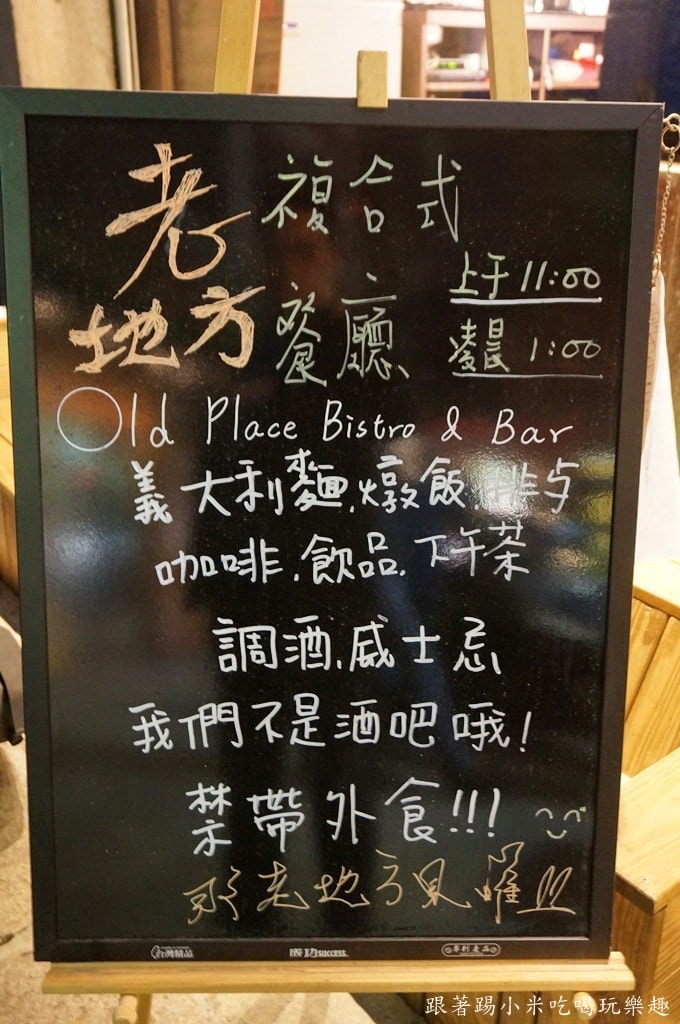 老地方
複合式
餐廳
上午 11:00
凌晨 1:00
Old Place Bistro & Bar
義大利麵.燉飯.排与
咖啡.飲品.下午茶
調酒.威士忌
我們不是酒吧哦!
禁帶外食!!!
老地方見囉!!
台灣精品
成功success
專利產品
跟著踢小米吃喝玩樂趣